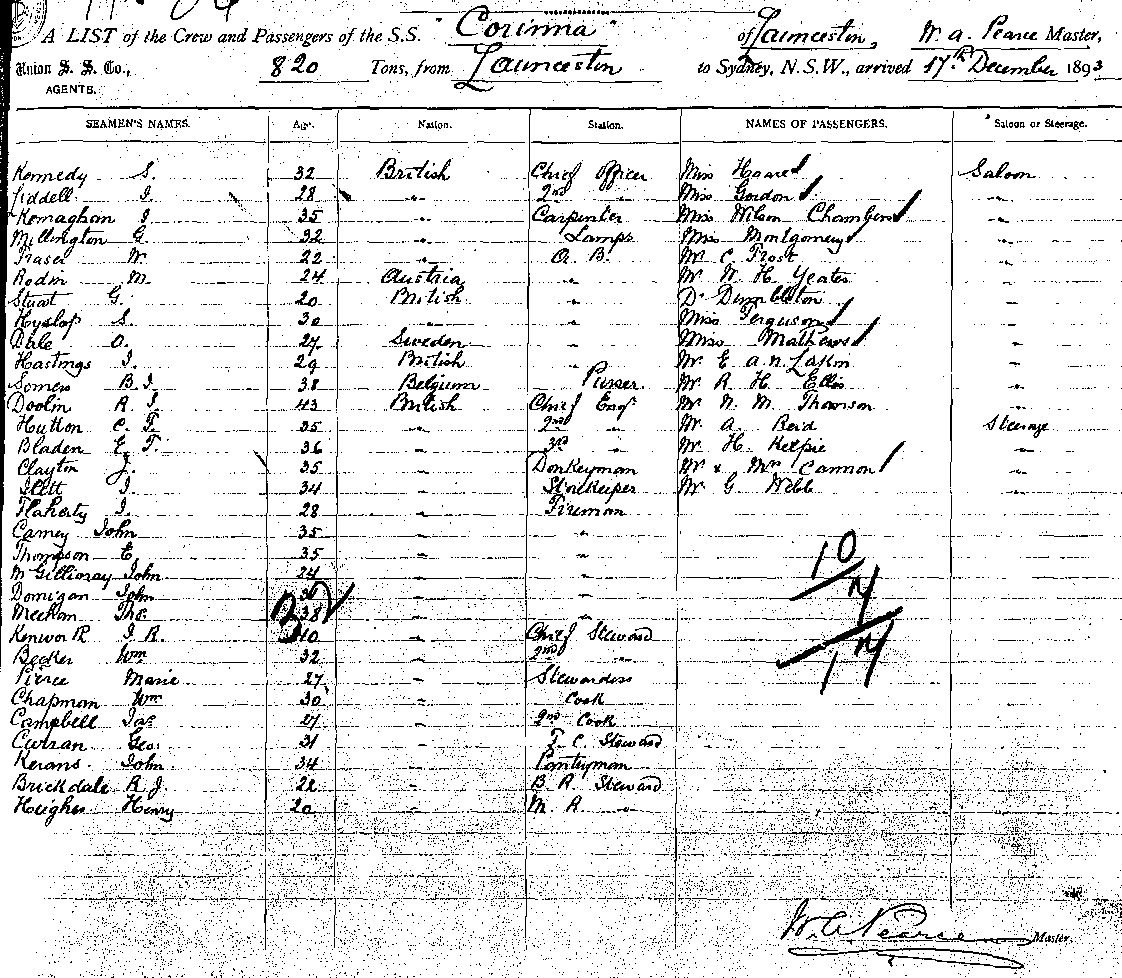 A LIST of the Crew and Passengers of the S.S. "Corinna" of Launceston, W. A. Pearce Master,
Union S. S. Co., 820 Tons, from Launceston to Sydney, N.S.W., arrived 17th December 1893
AGENTS.
SEAMEN'S NAMES. Age. Nation. Station. NAMES OF PASSENGERS. Saloon or Steerage.
Kennedy S. 32 British Chief Officer Miss Saloon
Liddell J. 28 " 2nd " Miss Gordon "
Kernaghan J. 35 " Carpenter Miss Wilson Chambers "
Millington G. 32 " Lamps Miss Montgomery "
Fraser W. 22 " A. B. Mr C Frost "
Rodin M. 24 Austria " Mr W H Yeates "
Stuart G. 20 British " Dr Dimbleton "
Hyslop S. 30 " " Miss Ferguson "
Dale O. 27 Sweden " Miss Mathews "
Hastings J. 29 British " Mr E A N Lakin "
Somers B. J. 38 Belgium Purser Mr R H Ellis "
Doolin R. J. 43 British Chief Engr Mr N M Thomson "
Hutton C. F. 35 " 2nd " Mr A Reid Steerage
Bladen E. F. 36 " 3rd " Mr H Kelpie "
Clayton J. 35 " Donkeyman Mr & Mrs Cannon "
Ilett J. 34 " Storekeeper Mr G Webb "
Flaherty J. 28 " Fireman
Carney John 35 " "
Thompson E. 35 " "
McGillivray John 24 " "
Donigan John " "
Meehan Thos. 38 " "
J. R. 40 " Chief Steward
Becker Wm 32 " 2nd "
Pierce Marie 27 " Stewardess
Chapman Wm 30 " Cook
Campbell Jas. 27 " 2nd Cook
Curran Geo. 31 " F. C. Steward
Kerans John 34 " Pantryman
Brickdale R J. 22 " B. R. Steward
Hughes Henry 20 " M. R. "
10
14
W. A. Pearce Master.